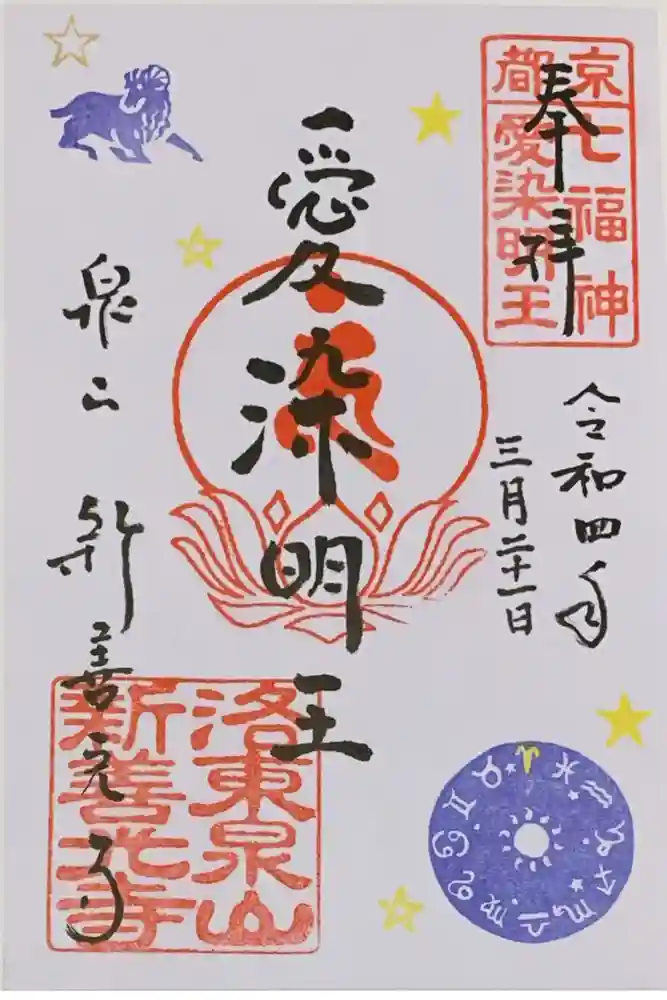 奉拝
京七福神
都愛染明王
令和四年
三月二十一日
愛染明王
泉山 新善光寺
洛東泉山
新善光寺
♈♉♊♋♌♍♎♏♐♑♒♓